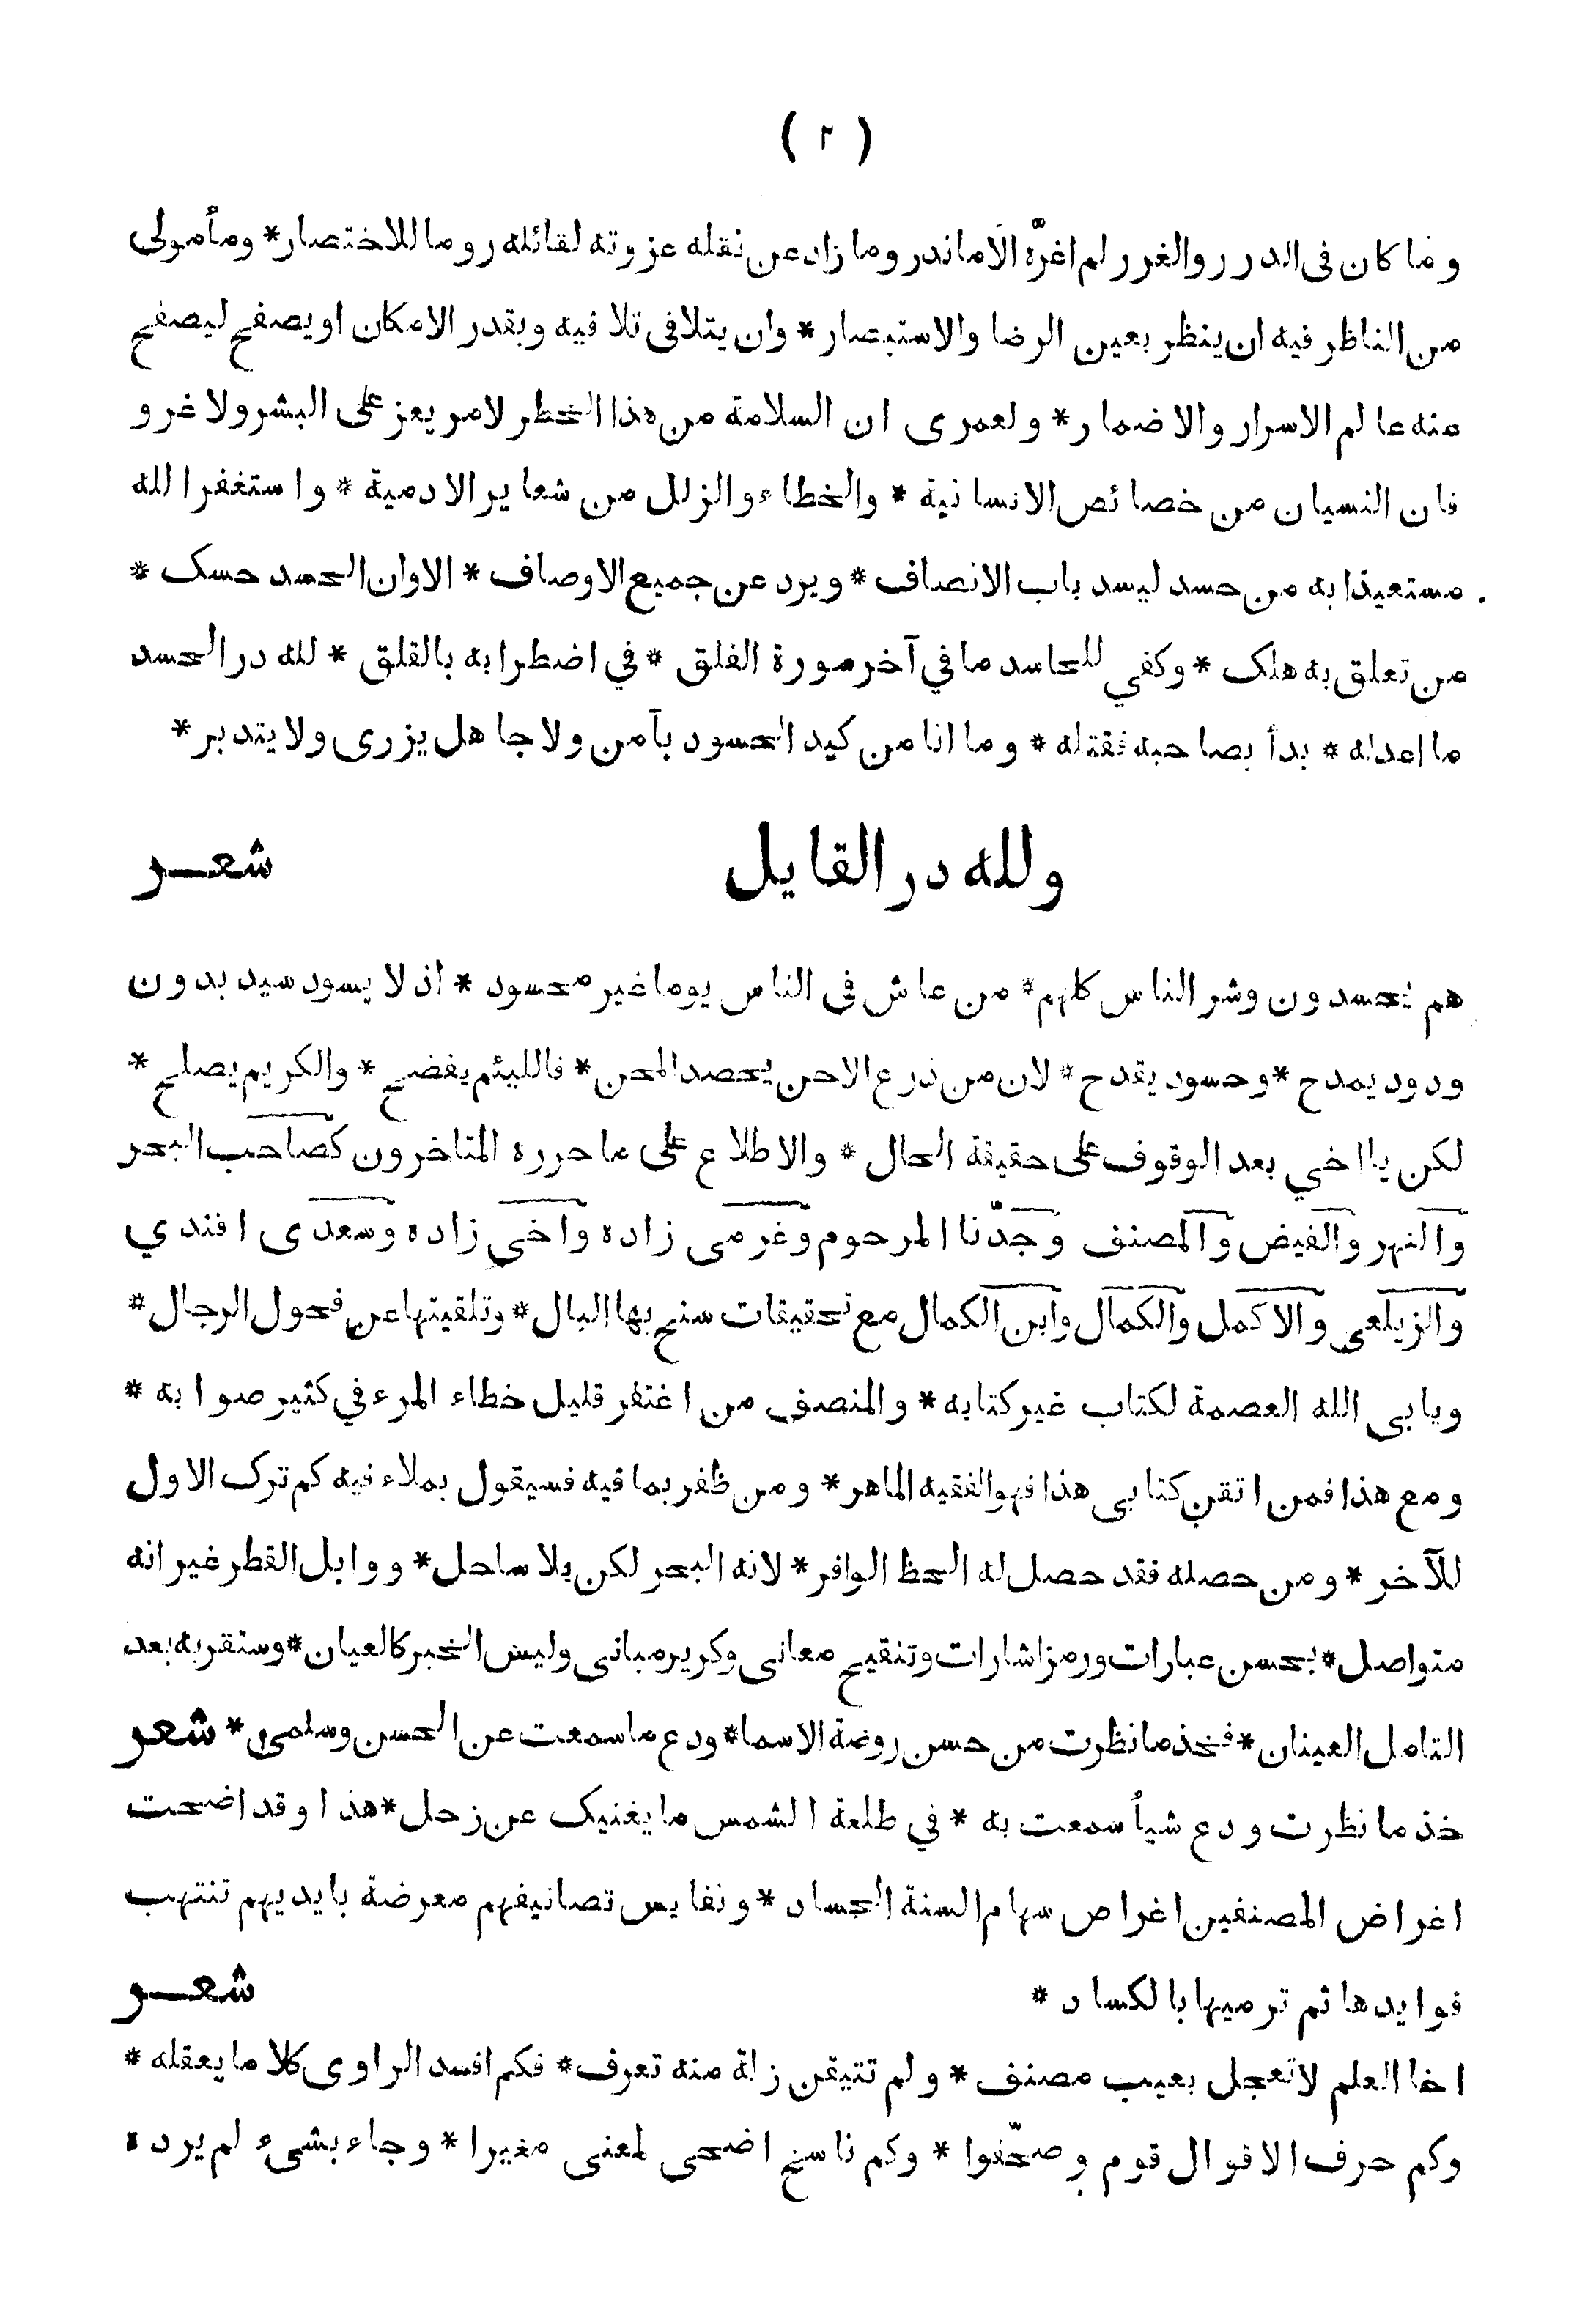 ( ٢ )
وما كان فى الدرر والغرر لم اغرّه الاماندر وما زاد عن نقله عزوته لقائله روما للاختصار* ومأمولى
من الناظر فيه ان ينظر بعين الرضا والاستبصار * وان يتلافى تلافيه وبقدر الامكان اويصفح ليصفح
عنه عالم الاسرار والاضمار * ولعمرى ان السلامة من هذا الخطر لامر يعز على البشر ولا غرو
فان النسيان من خصائص الانسانية * والخطاء والزلل من شعاير الادمية * واستغفر الله
مستعيذا به من حسد ليسد باب الانصاف * ويرد عن جميع الاوصاف * الاوان الحسد حسك *
من تعلق به هلك * وكفي للحاسد ما في آخر سورة الفلق * في اضطرابه بالقلق * لله در الحسد
ما اعدله * بدأ بصاحبه فقتله * وما انا من كيد الحسود بآمن ولا جاهل يزرى ولا يتدبر *
ولله در القايل شعر
هم يحسدون وشر الناس كلهم * من عاش في الناس يوما غير محسود * اذ لا يسود سيد بدون
ودود يمدح * وحسود يقدح * لان من ذرع الاحن يحصد المحن * فاللئيم يفضح * والكريم يصلح *
لكن يا اخي بعد الوقوف على حقيقة الحال * والاطلاع على ما حرره المتاخرون كصاحب البحر
والنهر والفيض والمصنف وجدّنا المرحوم وغرمى زاده واخى زاده وسعدى افندي
والزيلعى والاكمل والكمال وابن الكمال مع تحقيقات سنح بها البال * وتلقيتها عن فحول الرجال *
ويابى الله العصمة لكتاب غير كتابه * والمنصف من اغتفر قليل خطاء المرء في كثير صوابه *
ومع هذا فمن اتقن كتابى هذا فهو الفقيه الماهر * ومن ظفر بما فيه فسيقول بملاء فيه كم ترك الاول
للآخر * ومن حصله فقد حصل له الحظ الوافر * لانه البحر لكن بلا ساحل * ووابل القطر غير انه
متواصل * بحسن عبارات ورمز اشارات وتنقيح معانى وكرير مبانى وليس الخبر كالعيان * وستقر به بعد
التامل العينان * فخذ ما نظرت من حسن روضة الاسما * ودع ما سمعت عن الحسن وسلمى * شعر
خذ ما نظرت ودع شيأ سمعت به * في طلعة الشمس ما يغنيك عن زحل * هذا وقد اضحت
اغراض المصنفين اغراص سهام السنة الحساد * ونفايس تصانيفهم معرضة بايديهم تنتهب
فوايدها ثم ترميها بالكساد * شعر
اخا العلم لا تعجل بعيب مصنف * ولم تتيقن زلة منه تعرف * فكم افسد الراوى كلاما يعقله *
وكم حرف الاقوال قوم وصحّفوا * وكم ناسخ اضحى لمعنى مغيرا * وجاء بشىء لم يرده